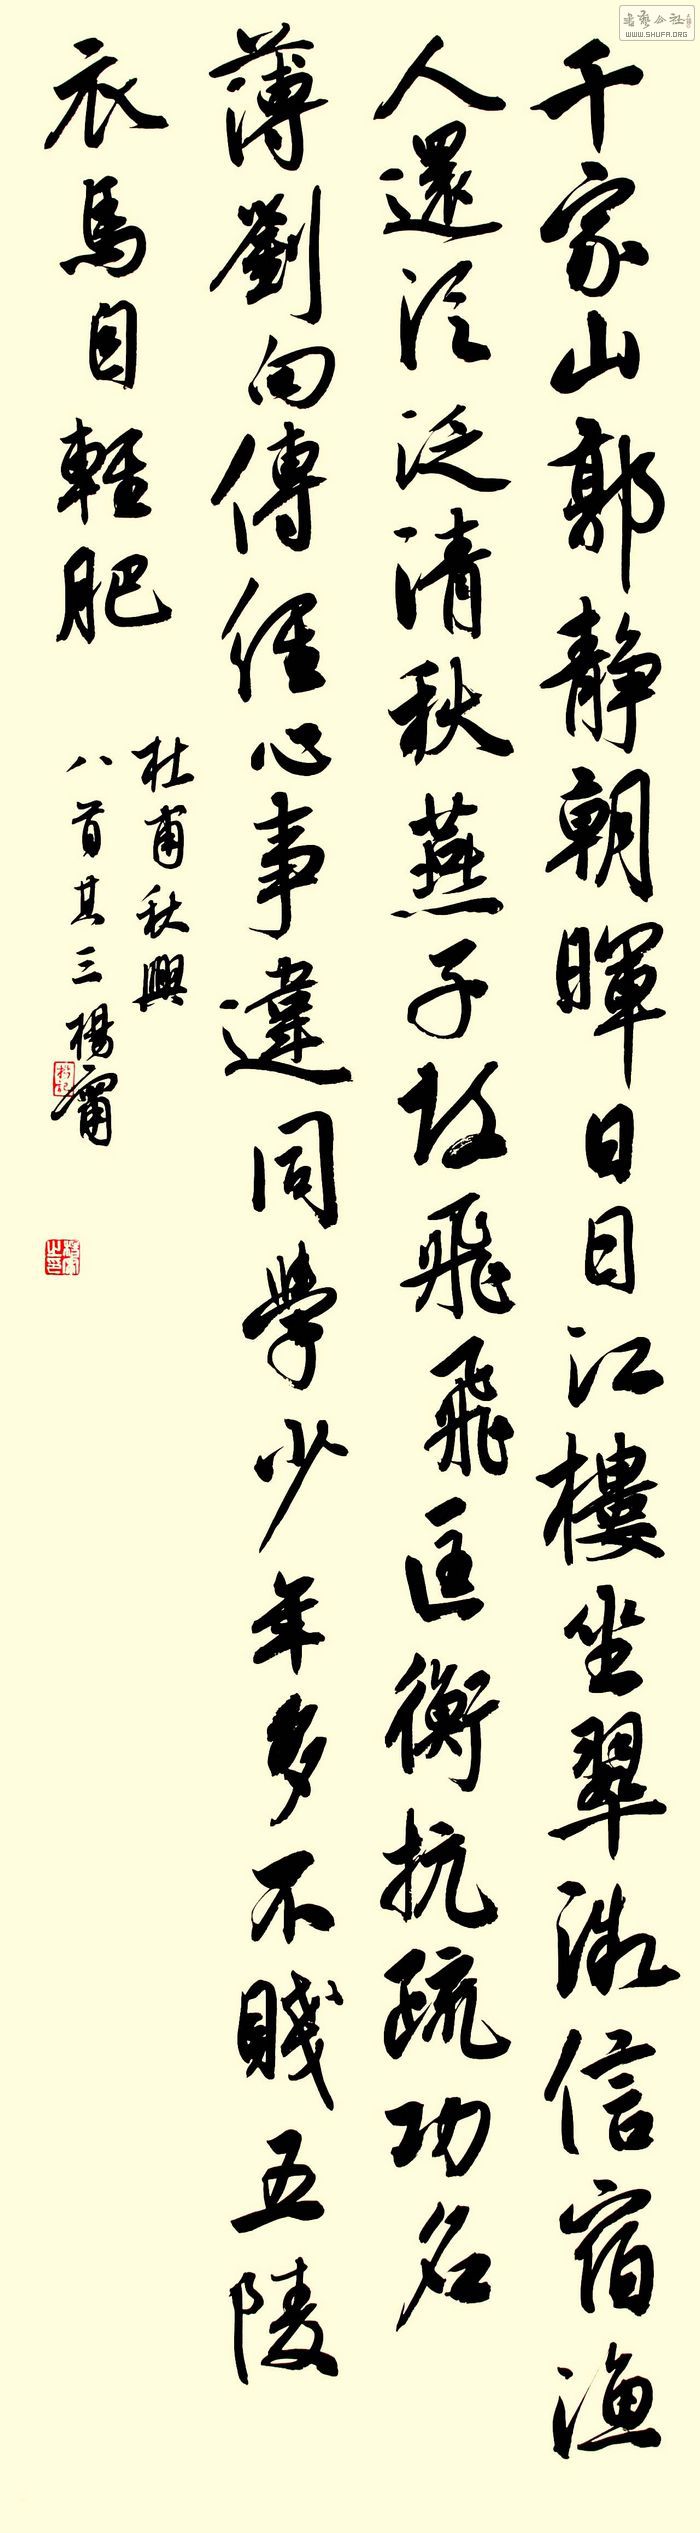 千家山郭静朝暉日日江樓坐翠微信宿漁
人還泛泛清秋燕子故飛飛匡衡抗疏功名
薄劉向傳經心事違同學少年多不賤五陵
衣馬自輕肥
杜甫秋興
八首其三楊甯
書藝公社
WWW.SHUFA.ORG